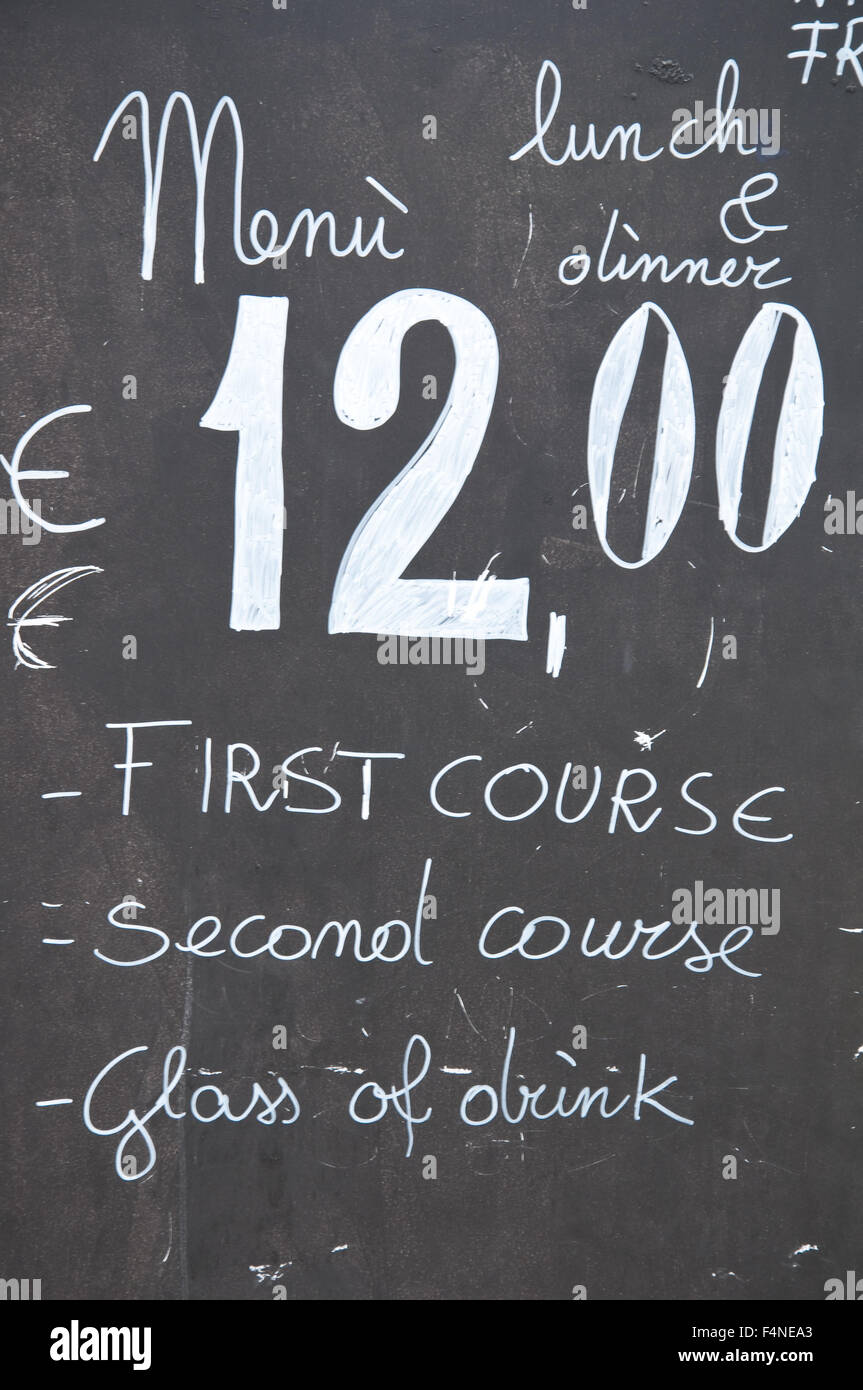 FR
Menù lunch
&
dinner
€ 12,00
€
- FIRST COURSE
= Second course
- Glass of drink
alamy
Image ID: F4NEA3
www.alamy.com